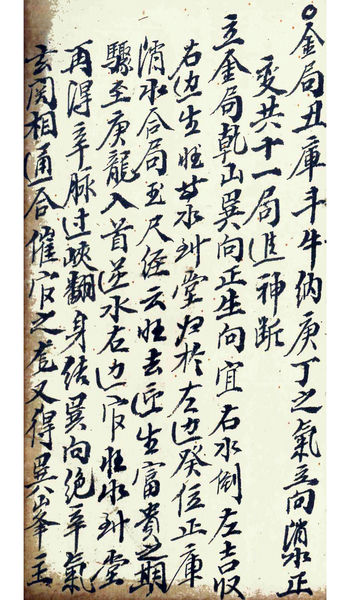 ○金局丑庫斗牛納庚丁之氣立向消水正
变共十一局進神断
立金局乾山巽向正生向宜右水倒左吉收
右边生旺其水到堂归於左边癸位正庫
消水合局玉尺經云旺去迎生富貴之期
驟至庚龍入首逆水右边官旺水到堂
再得辛脉过峽翻身結巽向绝辛氣
玄関相通合催官之 又得巽峯主